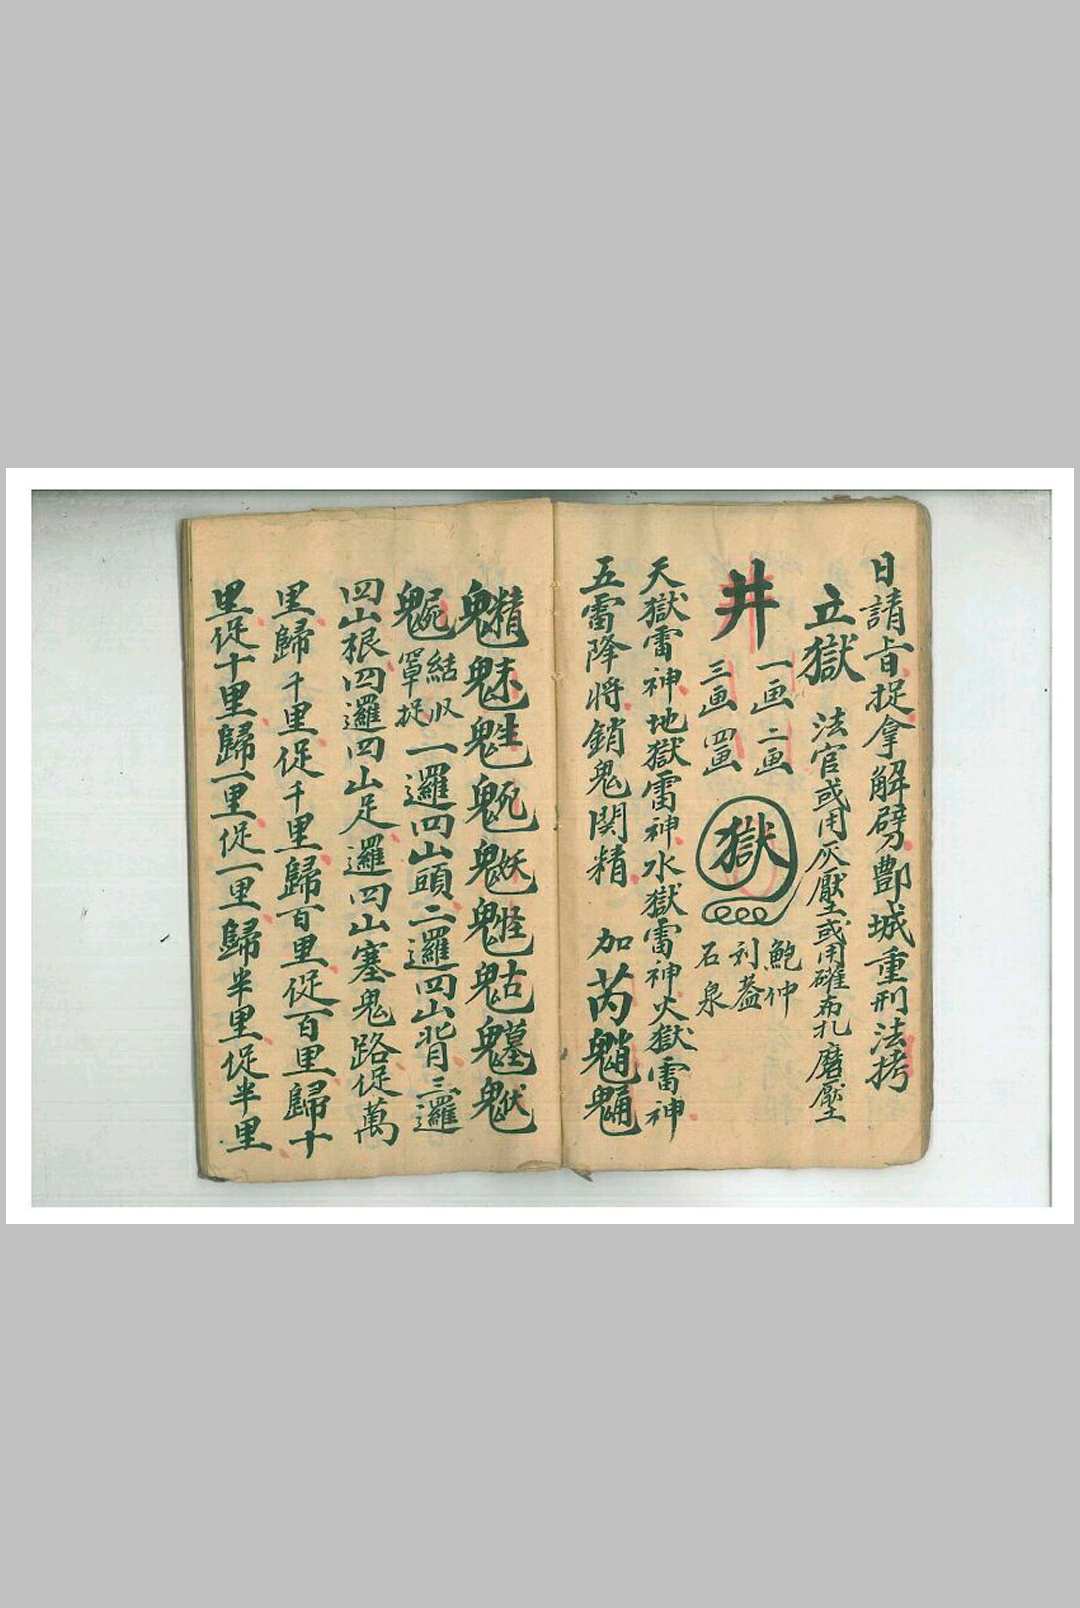 日請旨捉拿解劈酆城重刑法拷
立獄 法官或用灰壓或用碓布扎磨壓
井 一画二画
三画四画
獄
鮑仲
刘蓋
石泉
天獄雷神地獄雷神水獄雷神火獄雷神
五雷降将銷鬼関精 加芮
魅
結収
罩捉 一邏四山頭二邏四山背三邏
四山根四邏四山足邏四山塞鬼路促萬
里歸千里促千里歸百里促百里歸十
里促十里歸一里促一里歸半里促半里